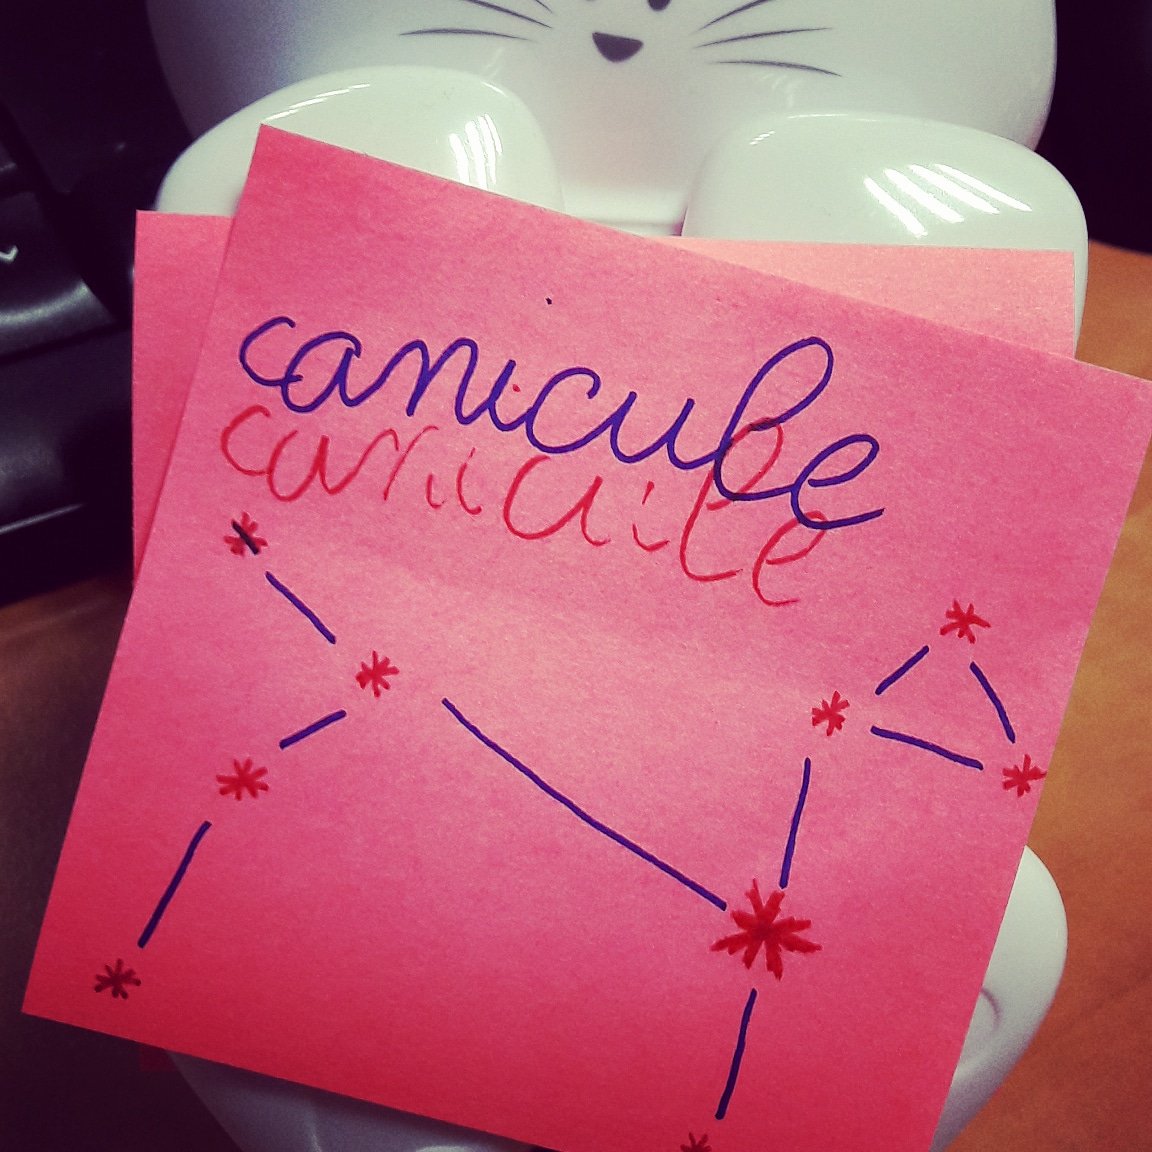 canicule
canicule